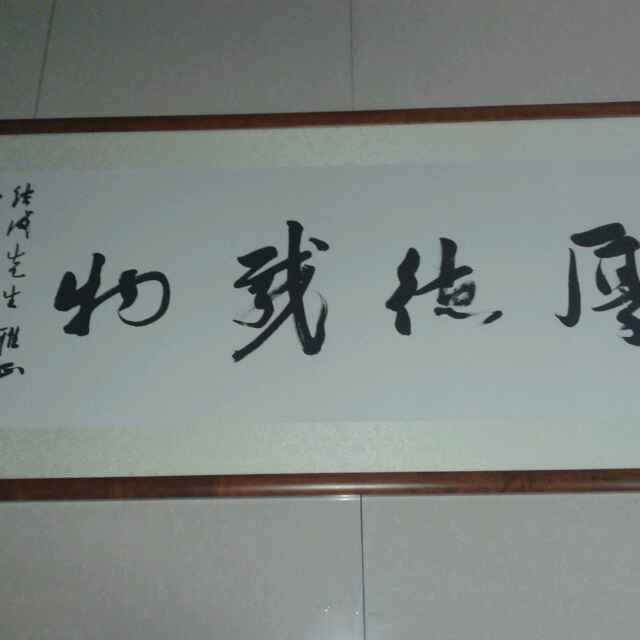 厚德载物
先生雅正